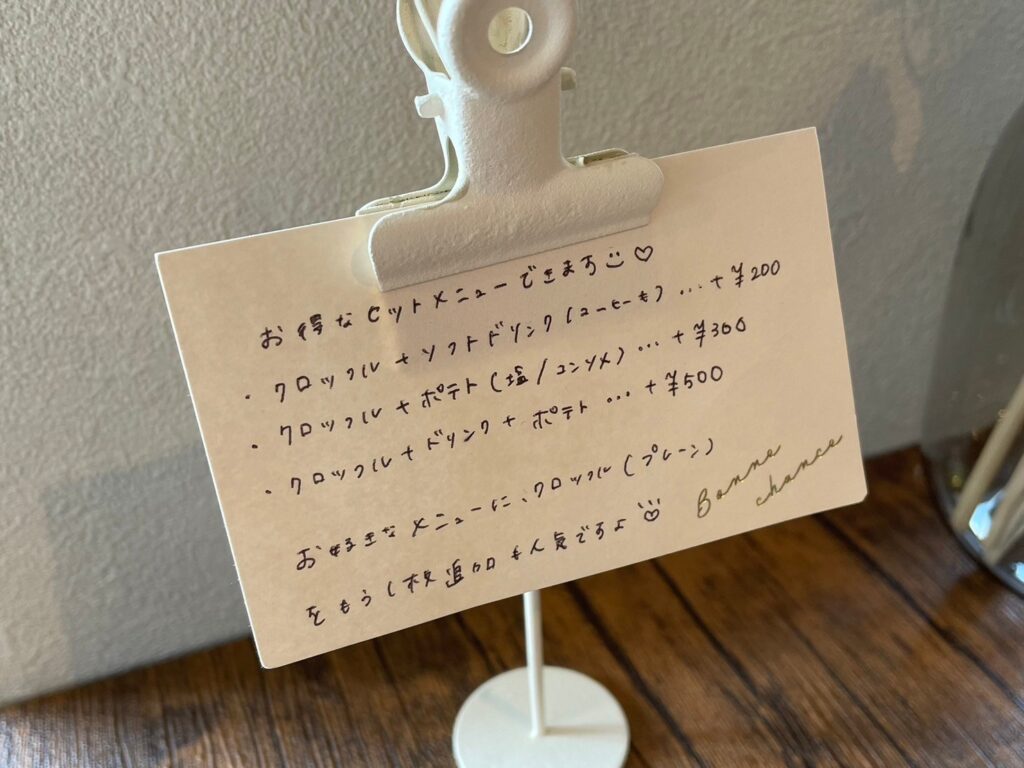 お得なセットメニューできます
・クロッフル+ソフトドリンク(コーヒーも)…+¥200
・クロッフル+ポテト(塩/コンソメ)…+¥300
・クロッフル+ドリンク+ポテト…+¥500
お好きなメニューに、クロッフル(プレーン)
をもう1枚追加も人気ですよ
Bonne
chance